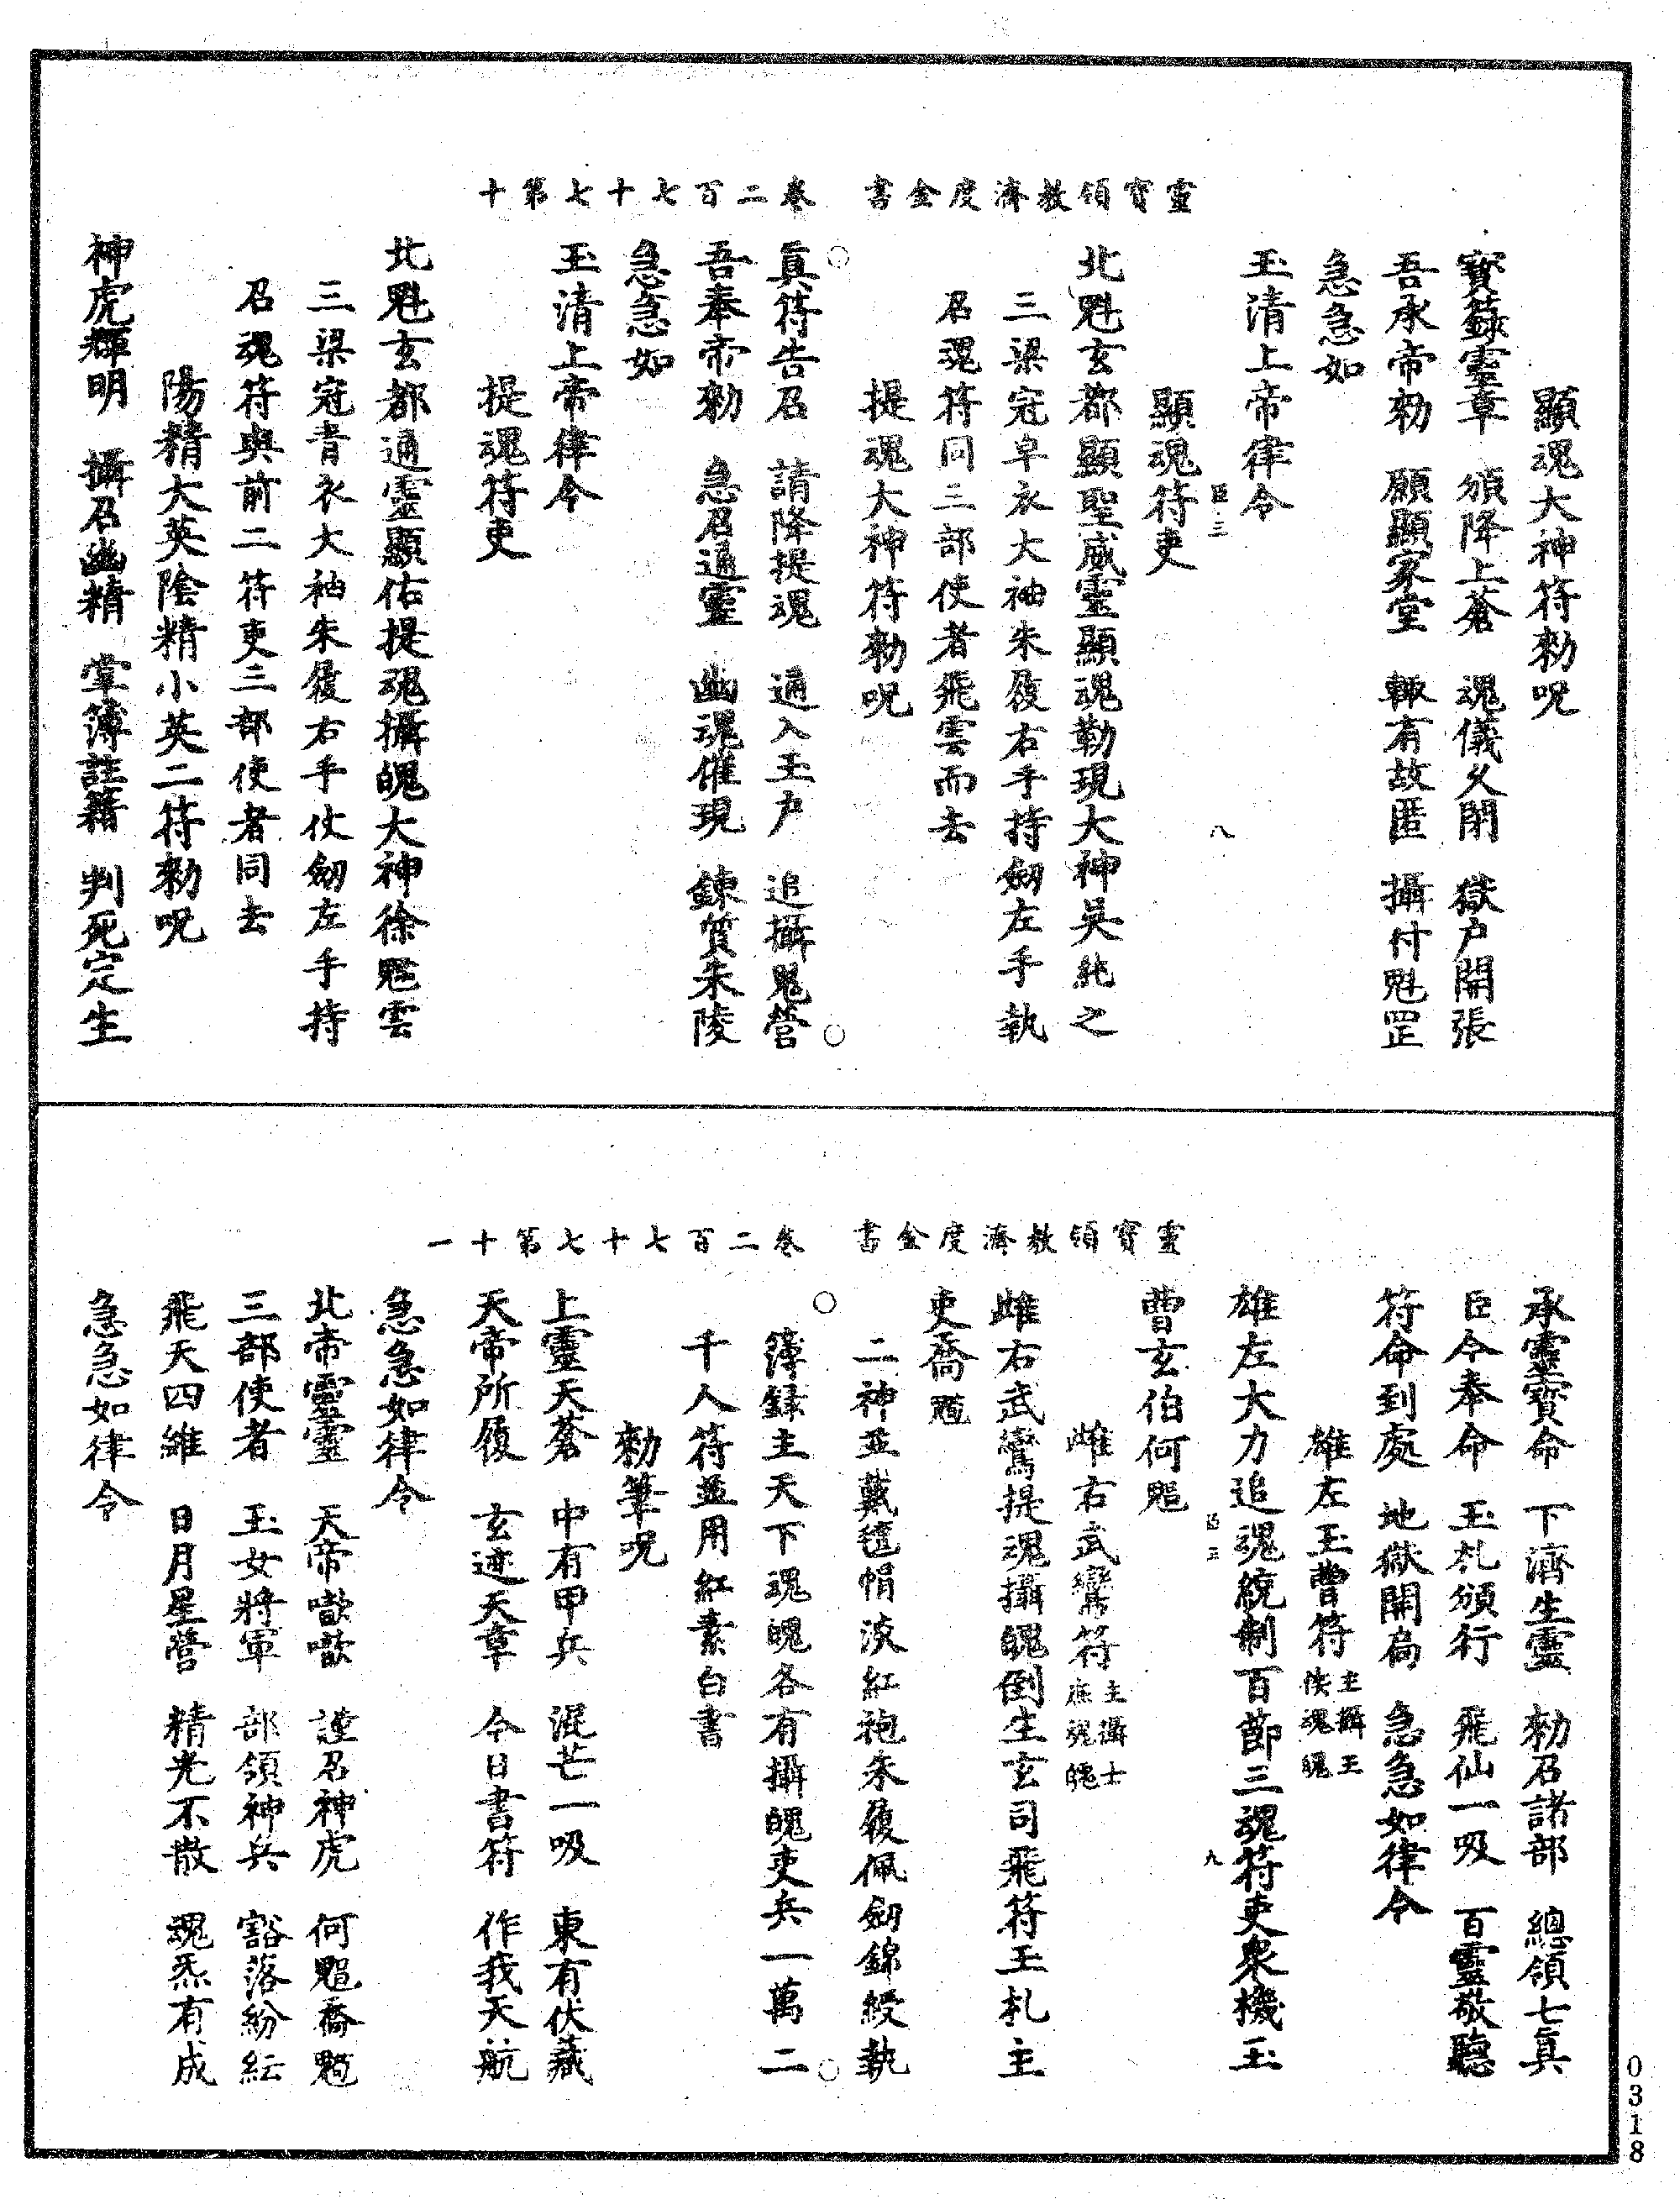 靈寶領教濟度金書　卷二百七十七第十
顯魂大神符勑呪
寶籙靈章　頒降上蒼　魂儀久閉　獄户開張
吾承帝勑　願顯家堂　輙有故匿　攝付魁罡
急急如
玉清上帝律令
顯魂符吏
臣三　八
北魁玄都顯聖威靈顯魂勒現大神吳純之
三梁冠皁衣大袖朱履右手持劒左手執
召魂符同三部使者飛雲而去
提魂大神符勑呪
真符告召　請降提魂　通入玉户　追攝鬼營
吾奉帝勑　急召通靈　幽魂催現　鍊質朱陵
急急如
玉清上帝律令
提魂符吏
北魁玄都通靈顯佑提魂攝魄大神徐魁雲
三梁冠青衣大袖朱履右手仗劒左手持
召魂符與前二符吏三部使者同去
陽精大英陰精小英二符勑呪
神虎輝明　攝召幽精　掌簿註籍　判死定生
靈寶領教濟度金書　卷二百七十七第十一
承靈寶命　下濟生靈　勑召諸部　總領七真
臣今奉命　玉札頒行　飛仙一吸　百靈敬聽
符命到處　地獄開扃　急急如律令
雄左玉曹符主攝王侯魂魄
雄左大力追魂統制百節三魂符吏衆機玉
曹玄伯何
三　九
雌右武鸞符主攝士庶魂魄
雌右武鸞提魂攝魄倒生玄司飛符玉札主
吏喬
二神並戴氊帽淡紅袍朱履佩劒錦綬執
簿錄主天下魂魄各有攝魄吏兵一萬二
千人符並用紅素白書
勑筆呪
上靈天蒼　中有甲兵　混芒一吸　東有伏藏
天帝所履　玄迹天章　今日書符　作我天航
急急如律令
北帝靈靈　天帝歕歕　謹召神虎　何喬
三部使者　玉女將軍　部領神兵　豁落紛紜
飛天四維　日月星營　精光不散　魂炁有成
急急如律令
0318